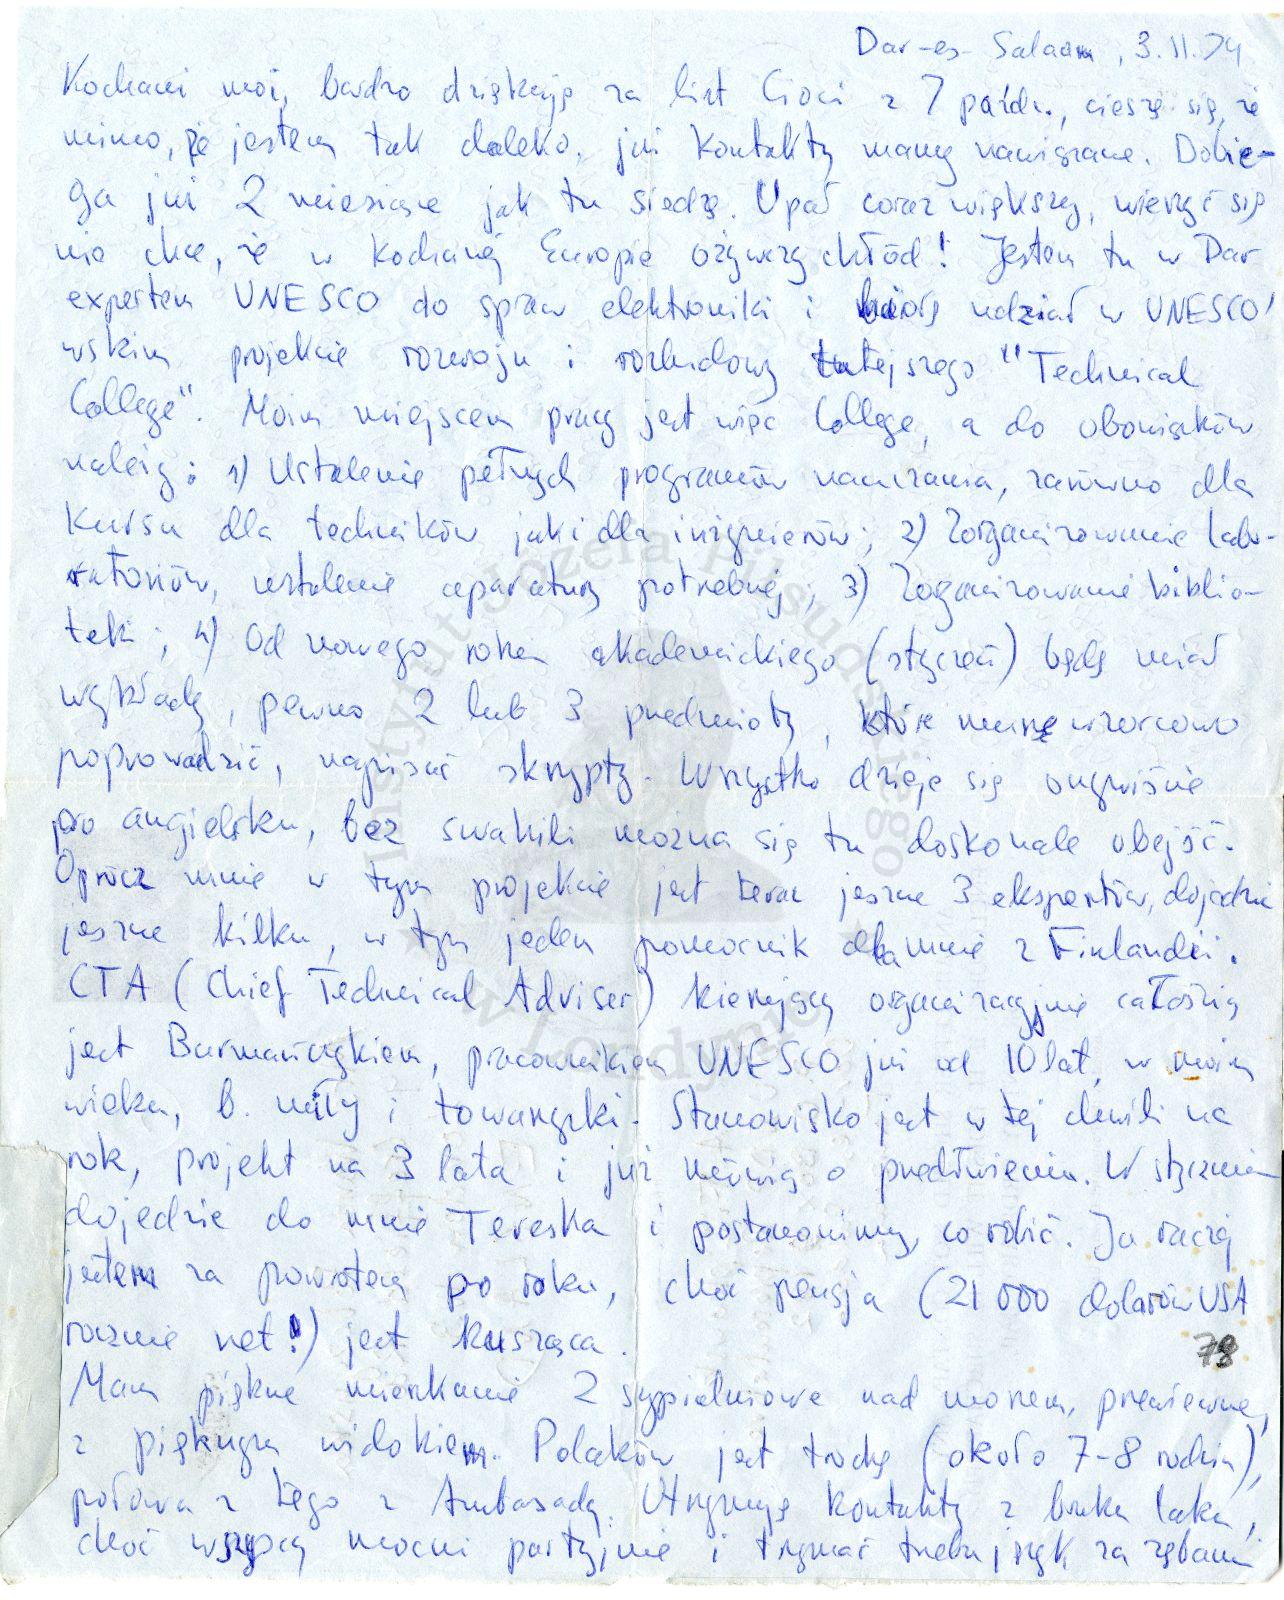 Dar-es-Salaam, 3.11.74
Kochani moi, bardzo dziękuję za list Cioci z 7 paźdz., cieszę się, że
mimo, że jestem tak daleko, już kontakty mamy nawiązane. Dobie-
ga już 2 miesiące jak tu siedzę. Upał coraz większy, wierzyć się
nie chce, że w kochanej Europie ożywczy chłód! Jestem tu w Dar
expertem UNESCO do spraw elektroniki i biorę udział w UNESCO'
wskim projekcie rozwoju i rozbudowy tutejszego "Technical
College". Moim miejscem pracy jest więc College, a do obowiązków
należą: 1) Ustalenie pełnych programów nauczania, zarówno dla
kursu dla techników jak i dla inżynierów; 2) Zorganizowanie labo-
ratoriów, ustalenie aparatury potrzebnej; 3) Zorganizowanie biblio-
teki; 4) Od nowego roku akademickiego (styczeń) będę miał
wykłady, pewno 2 lub 3 przedmioty, które muszę wzorcowo
poprowadzić, napisać skrypty. Wszystko dzieje się oczywiście
po angielsku, bez swahili można się tu doskonale obejść.
Oprócz mnie w tym projekcie jest teraz jeszcze 3 ekspertów, dojedzie
jeszcze kilku, w tym jeden pomocnik dla mnie z Finlandii.
CTA (Chief Technical Adviser) kierujący organizacyjnie całością
jest Burmańczykiem, pracownikiem UNESCO już od 10 lat, w moim
wieku, b. miły i towarzyski. Stanowisko jest w tej chwili na
rok, projekt na 3 lata i już mówią o przedłużeniu. W styczniu
dojedzie do mnie Tereska i postanowimy, co robić. Ja raczej
jestem za powrotem po roku, choć pensja (21 000 dolarów USA
rocznie net!) jest kusząca.
78
Mam piękne mieszkanie 2 sypialniowe nad morzem, przewiewne,
z pięknym widokiem. Polaków jest trochę (około 7-8 rodzin),
połowa z tego z Ambasady. Utrzymuję kontakty z braku laku,
choć wszyscy mocni partyjnie i trzymać trzeba język za zębami
Instytut Józefa Piłsudskiego
w Londynie